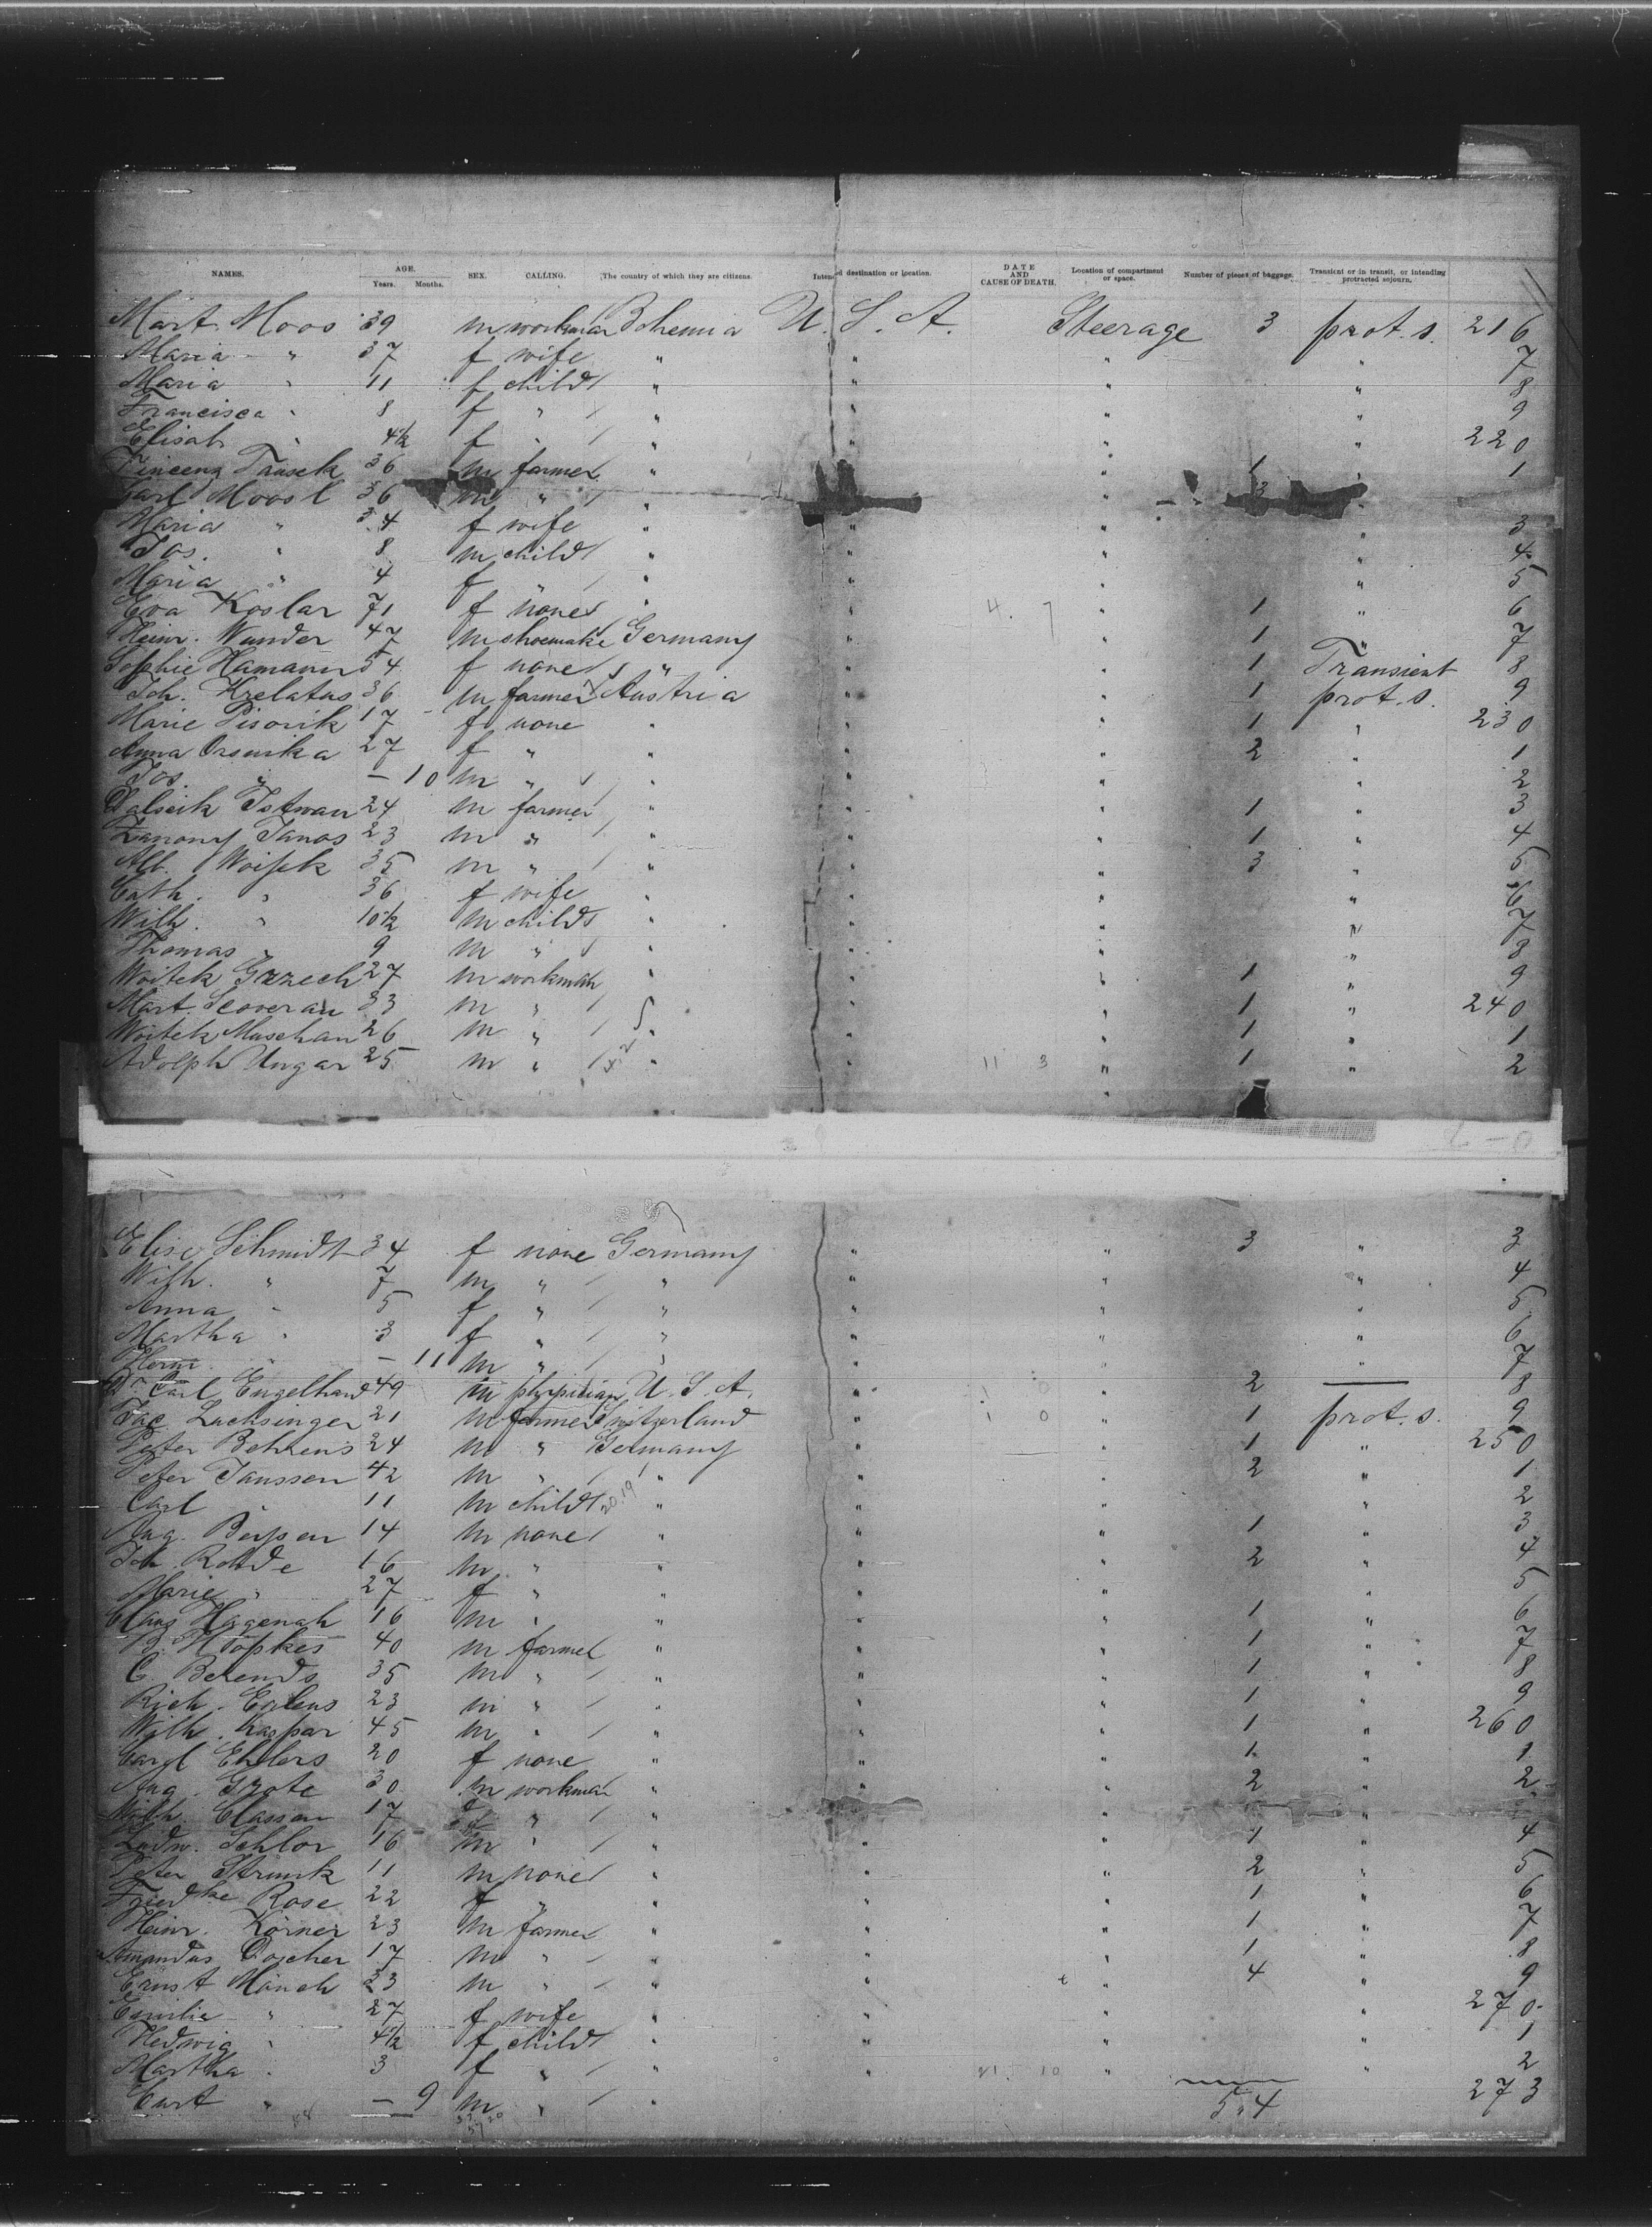 NAMES. AGE. Years. Months. SEX. CALLING. The country of which they are citizens. Intended destination or location. DATE AND CAUSE OF DEATH. Location of compartment or space. Number of pieces of baggage. Transient or in transit, or intending protracted sojourn.
Mart. Moos 39 m workman Bohemia U. S. A. Steerage 3 prot. s. 216
Maria " 37 f wife " " " " 7
Maria " 11 f child " " " " 8
Francisca " 8 f " " " " " 9
Elisab. " 4½ f " " " " " 220
Vincenz Trusek 36 m farmer " " " 1 " 1
Carl Moosl 36 m " " " 3 "
Maria " 34 f wife " " " " 3
Jos. " 8 m child " " " " 4
Maria " 4 f " " " " " 5
Eva Koslar 71 f none " " " 1 " 6
Heinr. Wunder 47 m shoemake Germany " " 1 " 7
Sophie Hamann 54 f none " " " 1 Transient 8
Joh. Krelatus 36 m farmer Austria " " 1 prot. s. 9
Marie Pisorik 17 f none " " " 1 " 230
Anna Orsurika 27 f " " " " 2 " 1
Jos. " — 10 m " " " " " 2
Istwan 24 m farmer " " " 1 " 3
Zanony Janos 23 m " " " " 1 " 4
Alb. Woisek 35 m " " " " 3 " 5
Cath. " 36 f wife " " " " 6
Wilh. " 10½ m child " " " " 7
Thomas " 9 m " " " " " 8
Woitek Grzech 27 m workman " " " 1 " 9
Mart. Scoveran 33 m " " " " 1 " 240
Woitek Muschan 26 m " " " " 1 " 1
Adolph Ungar 25 m " " " 11 3 " 1 " 2
Elise Schmidt 34 f none Germany " " 3 " 3
Wilh. " 7 m " " " " " 4
Anna " 5 f " " " " " 5
Martha " 3 f " " " " " 6
Herm. " — 11 m " " " " " 7
Dr. Carl Engelhard 49 m physician U. S. A. " " 2 — 8
Jac. Luchsinger 21 m farmer Switzerland " " 1 prot. s. 9
Peter Behrens 24 m " Germany " " 1 " 250
Peter Janssen 42 m " " " " 2 " 1
Carl " 11 m child " " " " 2
Aug. 14 m none " " " 1 " 3
Joh. Rohde 16 m " " " " 2 " 4
Marie " 27 f " " " " " 5
Claus Hagenah 16 m " " " " 1 " 6
B. Höpkes 40 m farmer " " " 1 " 7
C. Berends 35 m " " " " 1 " 8
Rich. Eylers 23 m " " " " 1 " 9
Wilh. Kaspar 45 m " " " " 1 " 260
Carol. Ehlers 20 f none " " " 1 " 1
Aug. Grote 30 m workman " " " 2 " 2
Wilh. Classen 17 " " "
Ludw. Schlor 16 m " " " " 1 " 4
Peter Strunk 11 m none " " " 2 " 5
Friedke Rose 22 f " " " " 1 " 6
Heinr. Körner 23 m farmer " " " 1 " 7
Amandus Doscher 17 m " " " " 1 " 8
Ernst Mönch 33 m " " " " 4 " 9
Emilie " 27 f wife " " " " 270
Hedwig " 4½ f child " " " " 1
Martha " 3 f " " " 21 10 " " 2
Curt " — 9 m " " 54 273